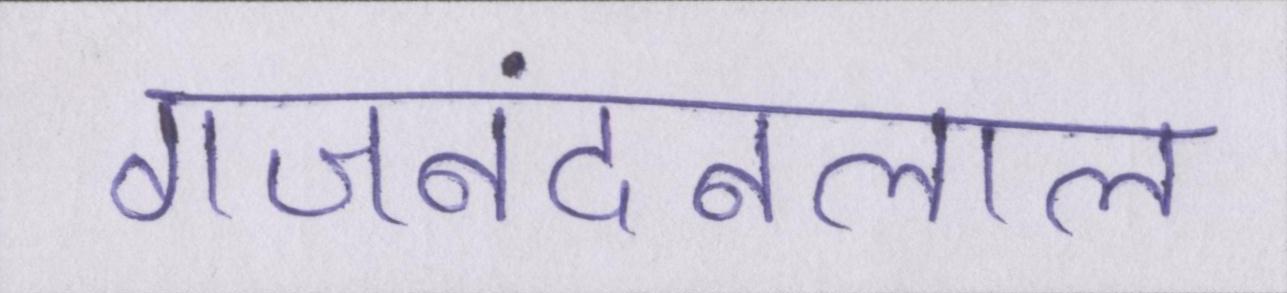 गजनंदनलाल